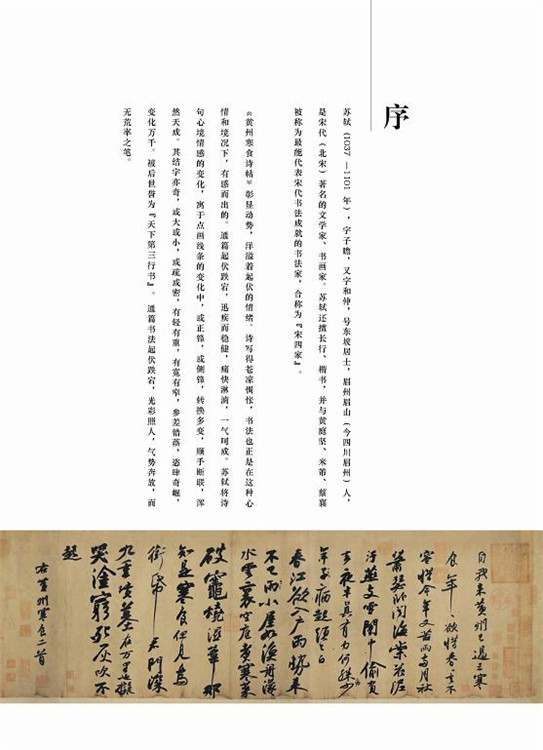 序
苏轼（1037 —1101 年），字子瞻，又字和仲，号东坡居士，眉州眉山（今四川眉州）人，
是宋代（北宋）著名的文学家、书画家。苏轼还擅长行、楷书，并与黄庭坚、米芾、蔡襄
被称为最能代表宋代书法成就的书法家，合称为『宋四家』。
《黄州寒食诗帖》彰显动势，洋溢着起伏的情绪。诗写得苍凉惆怅，书法也正是在这种心
情和境况下，有感而出的。通篇起伏跌宕，迅疾而稳健，痛快淋漓，一气呵成。苏轼将诗
句心境情感的变化，寓于点画线条的变化中，或正锋，或侧锋，转换多变，顺手断联，浑
然天成。其结字亦奇，或大或小，或疏或密，有轻有重，有宽有窄，参差错落，恣肆奇崛，
变化万千。被后世誉为『天下第三行书』。 通篇书法起伏跌宕，光彩照人，气势奔放，而
无荒率之笔。
自我来黄州已過三寒
食年〻欲惜春〻去不
容惜今年又苦雨兩月秋
蕭瑟卧聞海棠花泥
汙燕支雪闇中偷負
去夜半真有力何殊少
年子病起須已白
春江欲入户雨勢來
不已雨小屋如漁舟濛〻
水雲裏空庖煮寒菜
破竈燒濕葦那
知是寒食但見烏
銜帋君門深
九重墳墓在万里也擬
哭塗窮死灰吹不
起
右黄州寒食二首